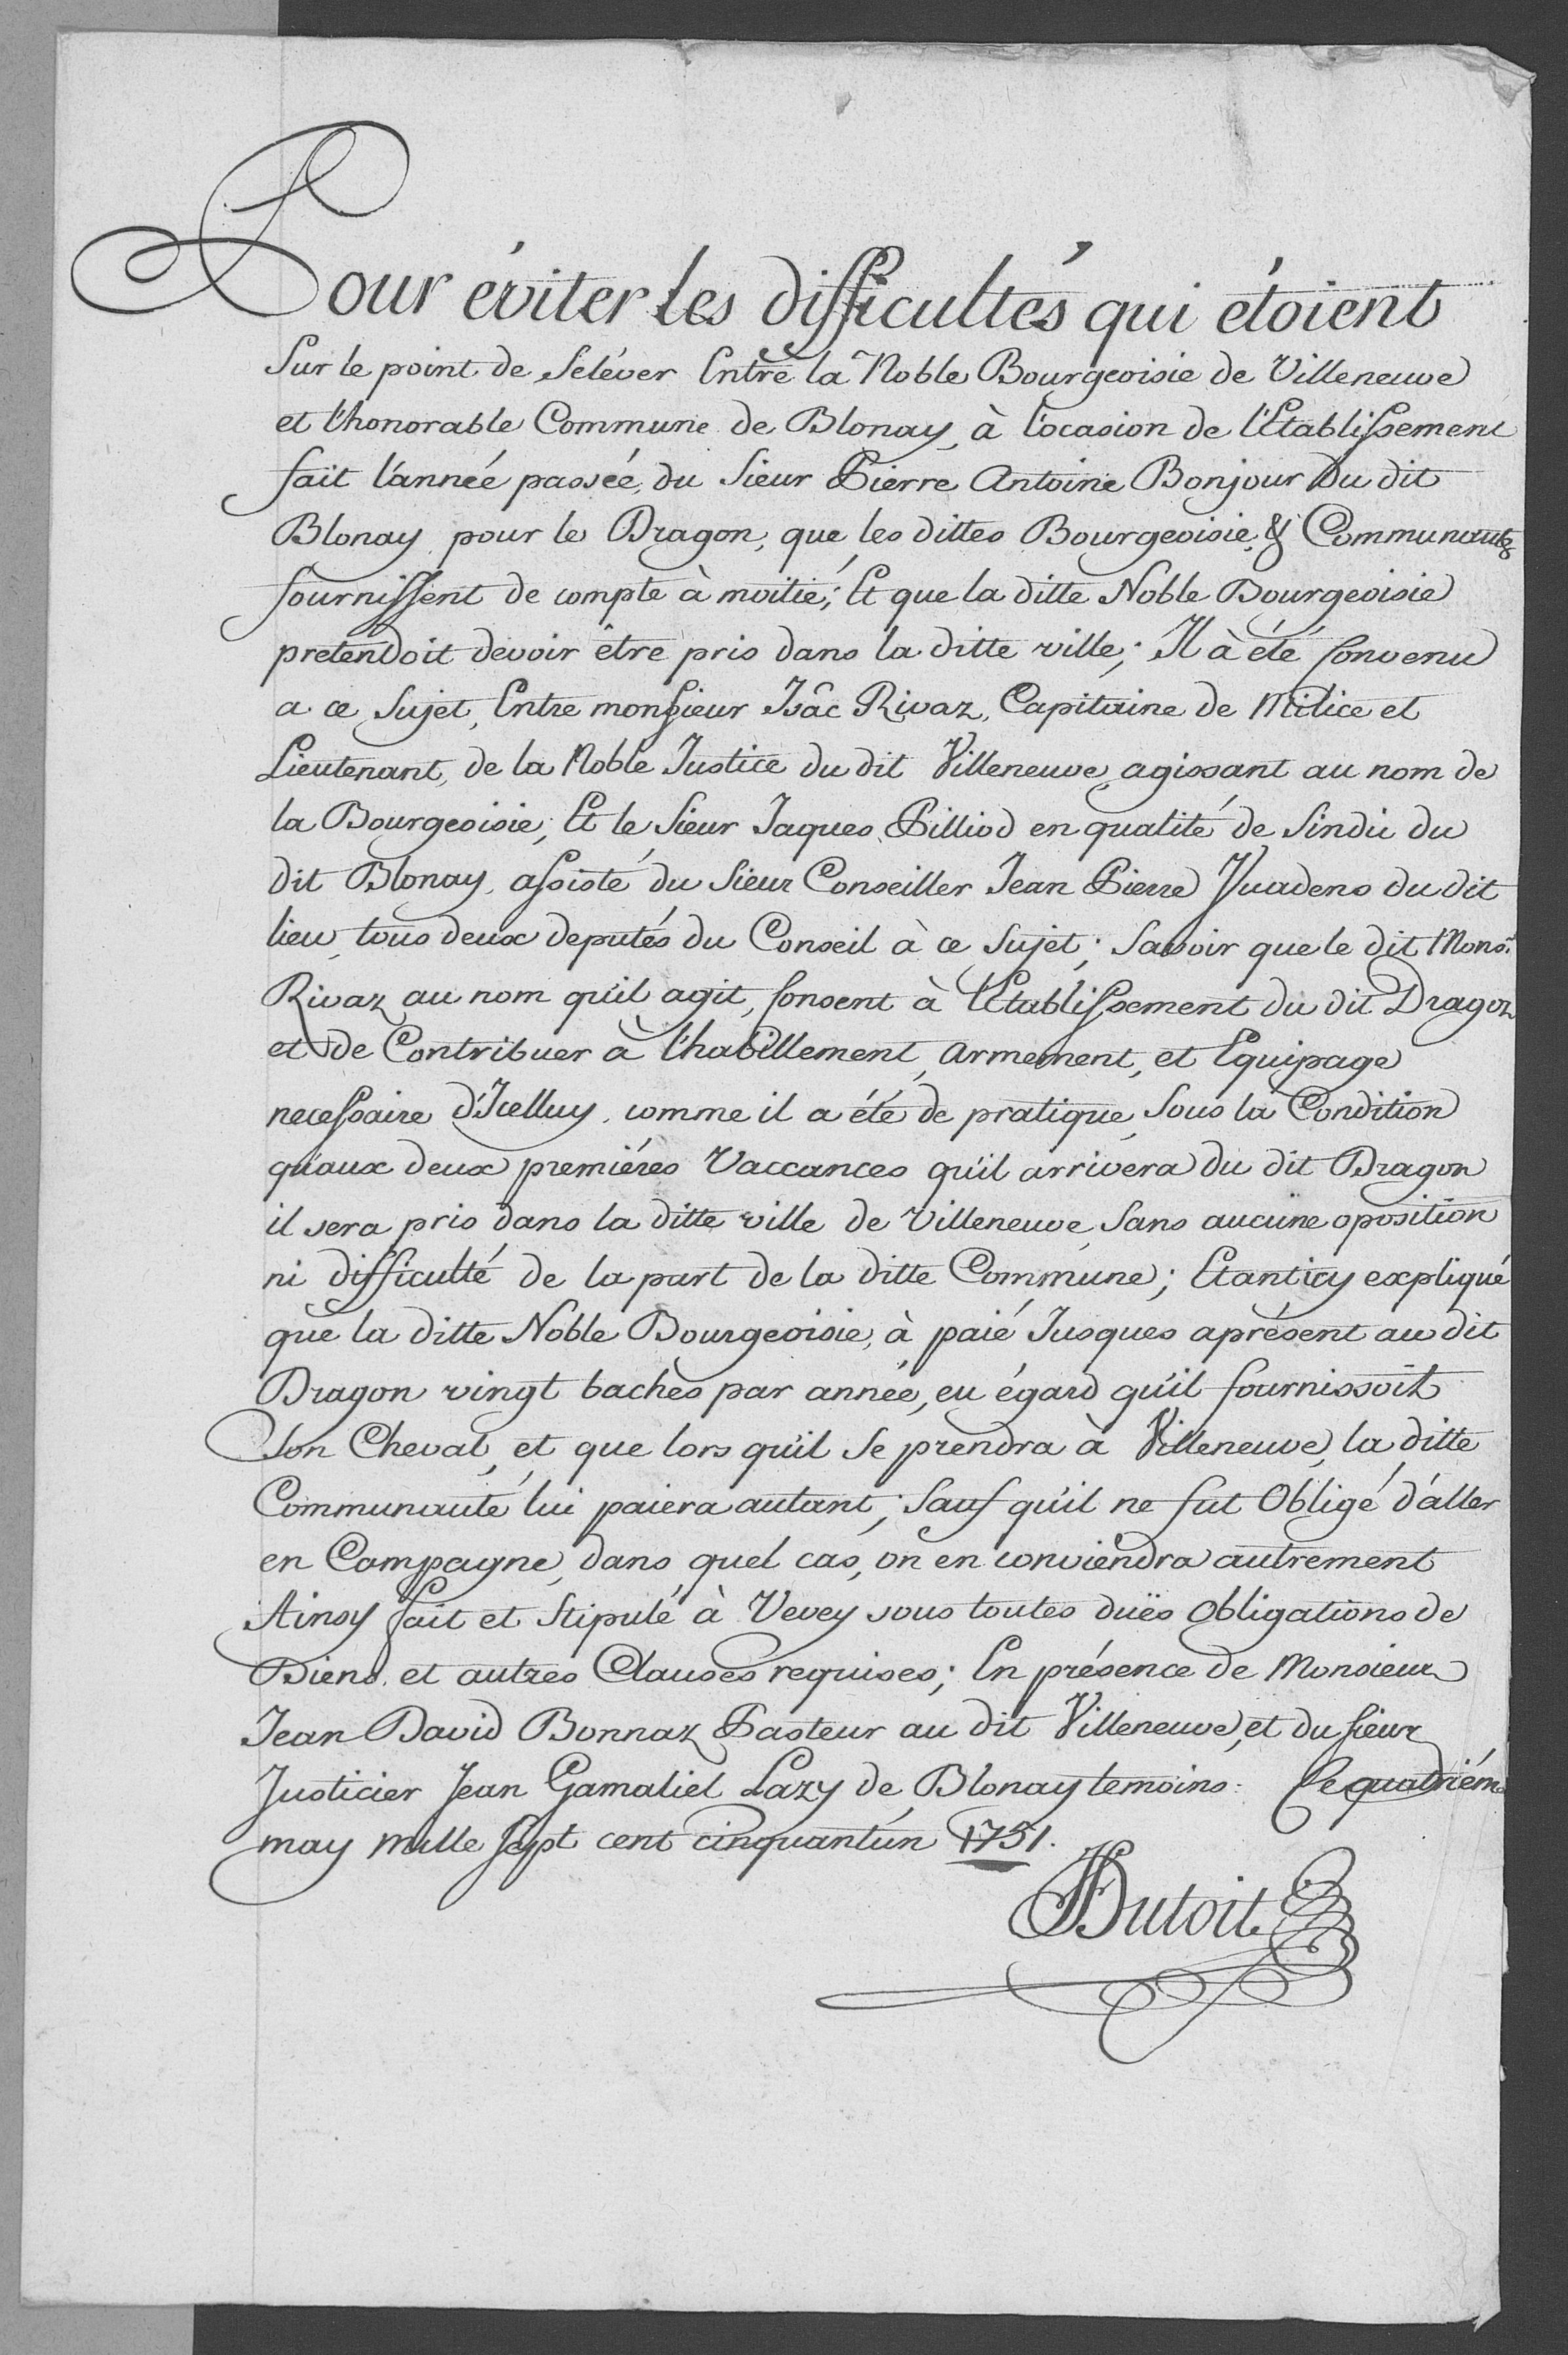 Pour éviter les difficultés qui étoient
Sur le point de S'eléver Entre la Noble Bourgeoisie de Villeneuve
et l'honorable Commune de Blonay, à l'ocasion de l'Etablissement
fait l'année passée, du Sieur Pierre Antoine Bonjour Du dit
Blonay pour le Dragon, que les dittes Bourgeoisie & Communauté
fournissent de compte à moitié; Et que la ditte Noble Bourgeoisie
pretendoit devoir être pris dans la ditte ville; Il à été Convenu
a ce Sujet, Entre monsieur Isâc Rivaz, Capitaine de Milice et
Lieutenant, de la Noble Justice du dit Villeneuve, agissant au nom de
la Bourgeoisie; Et le Sieur Jaques Pilliod en qualité de Sindic du
dit Blonay, assisté du Sieur Conseiller Jean Pierre Vuadens du dit
lieu, tous deux deputés du Conseil à ce Sujet; Savoir que le dit Monsr.
Rivaz au nom qu'il agit, Consent à l'Etablissement du dit Dragon
et de Contribuer à l'habillement, armement, et Equipage
necessaire d'Icelluy, comme il a été de pratique, Sous la Condition
qu'aux deux premiéres Vaccances qu'il arrivera du dit Dragon
il sera pris dans la ditte ville de Villeneuve, Sans aucune oposition
ni difficulté de la part de la ditte Commune; Etant icy expliqué
que la ditte Noble Bourgeoisie, à paié Jusques aprésent au dit
Dragon vingt baches par année, eu égard qu'il fournissoit
Son Cheval, et que lors qu'il Se prendra à Villeneuve, la ditte
Communauté lui paiera autant; Sauf qu'il ne fut Obligé d'aller
en Campagne, dans quel cas, on en conviendra autrement
Ainsy fait et Stipulé à Vevey sous toutes duës Obligations de
Biens, et autres Clauses requises; En présence de Monsieur
Jean David Bonnaz Pasteur au dit Villeneuve, et du Sieur
Justicier Jean Gamaliel Lazy de Blonay temoins: Ce quatriéme
may Mille Sept cent cinquant'un 1751.
Dutoit